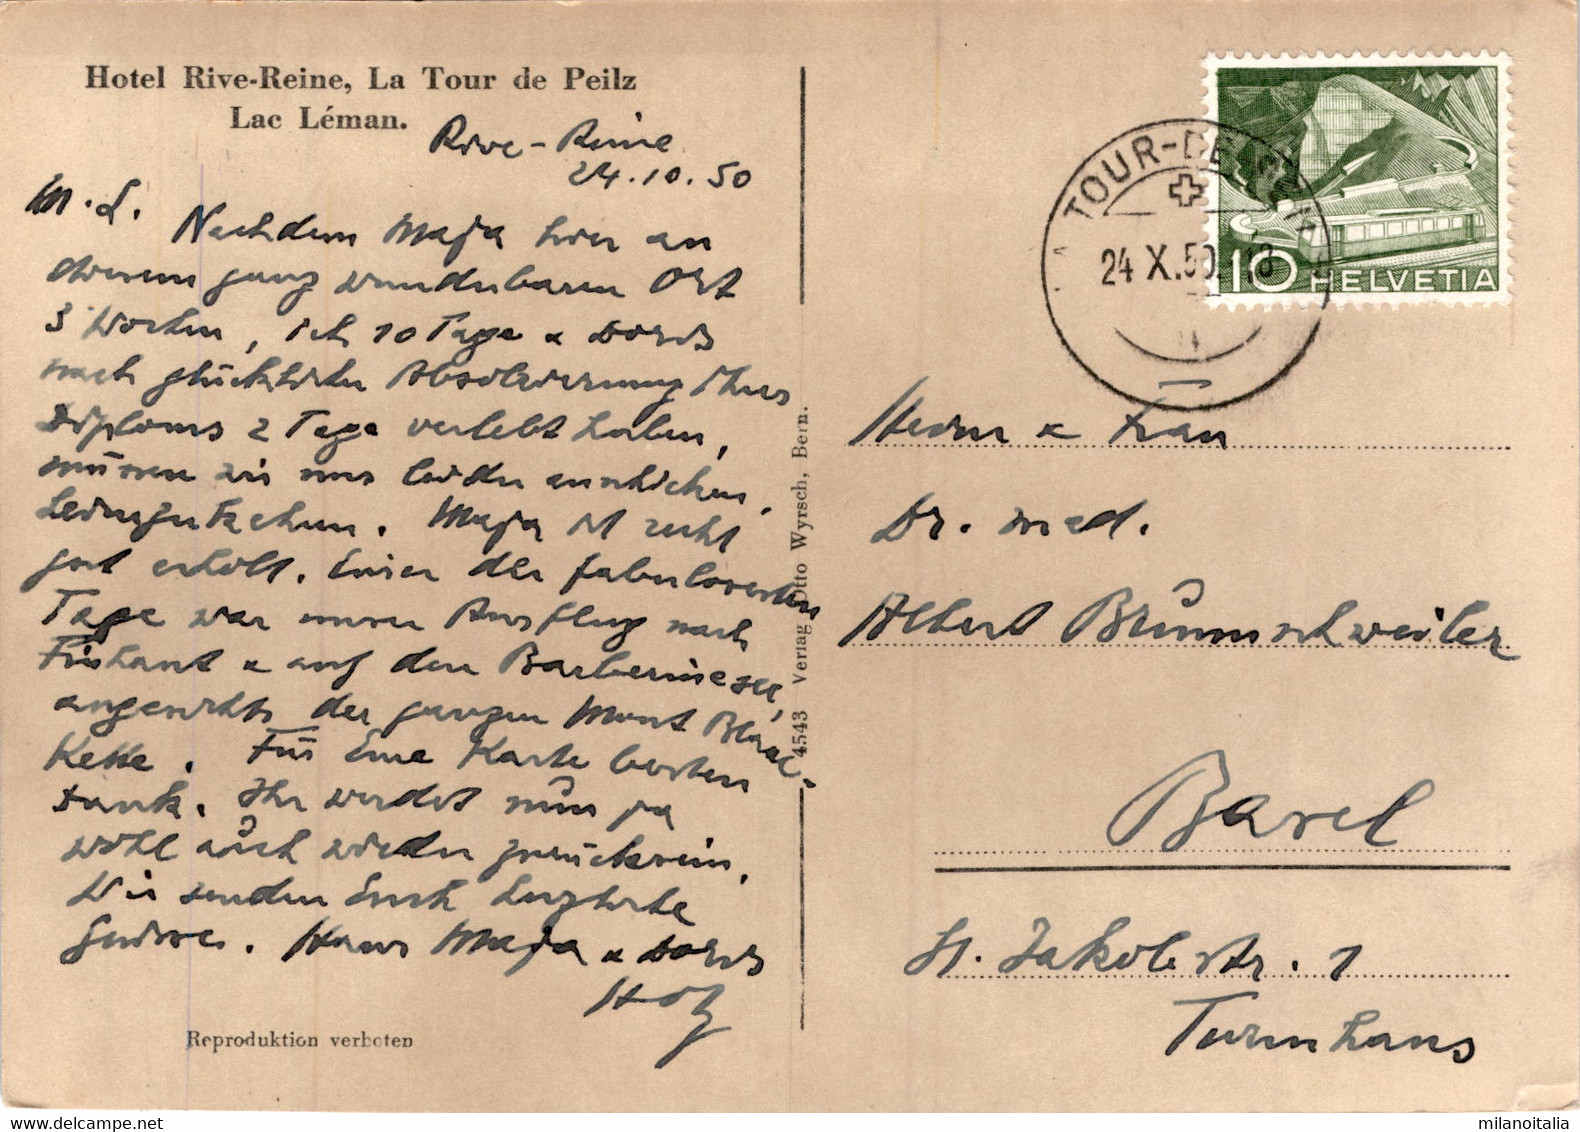 Hotel Rive-Reine, La Tour de Peilz
Lac Léman.
Rive-Reine
24.10.50
M. L.
Nachdem Maja hier an
diesem ganz wunderbaren Ort
3 Wochen, ich 10 Tage & Doris
nach glücklicher Absolvierung ihres
Diploms 2 Tage verlebt haben,
müssen wir uns leider anschicken,
heimzukehren. Maja ist recht
gut erholt. Einer der fabulosesten
Tage war unser Ausflug nach
Finhaut & auf den Barberinesee,
angesichts der ganzen Mont Blanc-
Kette. Für Eure Karte besten
Dank. Ihr werdet nun ja
wohl auch wieder zurück sein.
Wir senden Euch herzliche
Grüsse. Hans Maja & Doris
Hotz
Reproduktion verboten
4543 Verlag Otto Wyrsch, Bern.
TOUR-DE-PEILZ
24 X.50.-18
10 HELVETIA
Herrn & Frau
Dr. med.
Albert Brunnschweiler
Basel
St. Jakobstr. 1
Turmhaus
milanoitalia